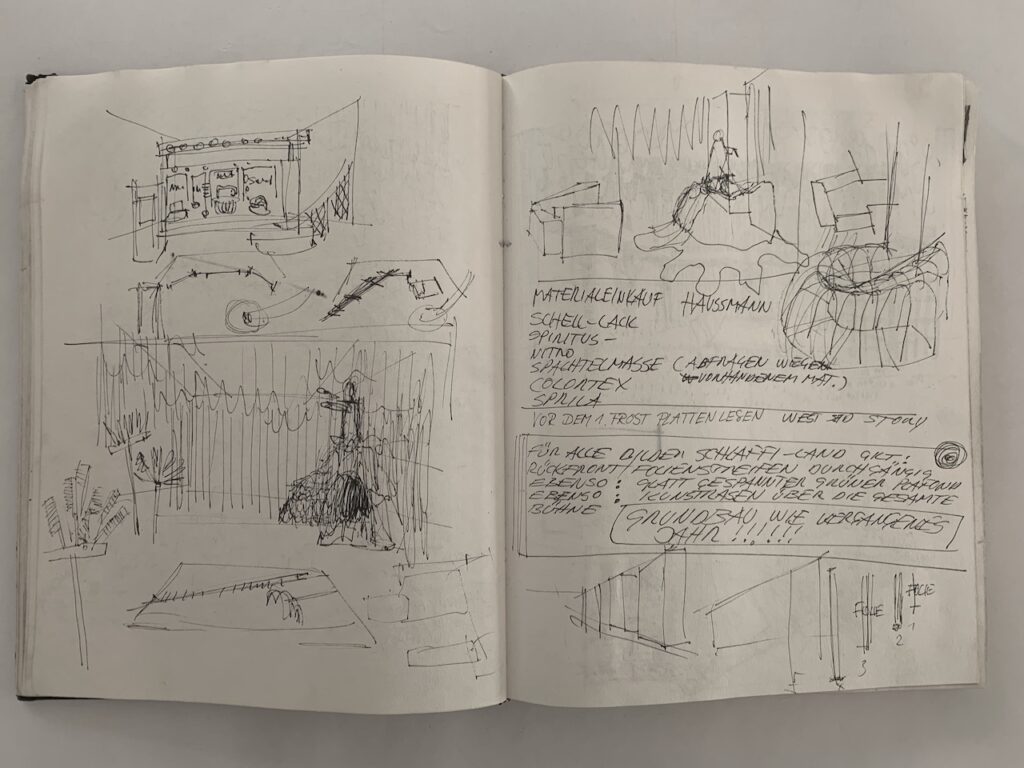 MATERIALEINKAUF HAUSSMANN
SCHELL-LACK
SPIRITUS-
NITRO
SPACHTELMASSE (ABFRAGEN WEGEN
VORHANDENEM MAT.)
COLORTEX
VOR DEM 1. FROST PLATTEN LESEN WEST
FÜR ALLE BILDER SCHLAFFI-LAND GILT:
RÜCKFRONT FOLIENSTREIFEN DURCHGÄNGIG
EBENSO: GLATT GESPANNTER GRÜNER PLAFOND
EBENSO: KUNSTRASEN ÜBER DIE GESAMTE
BÜHNE
GRUNDBAU WIE VERGANGENES
JAHR !!!!!!
FOLIE
FOLIE
1
2
3